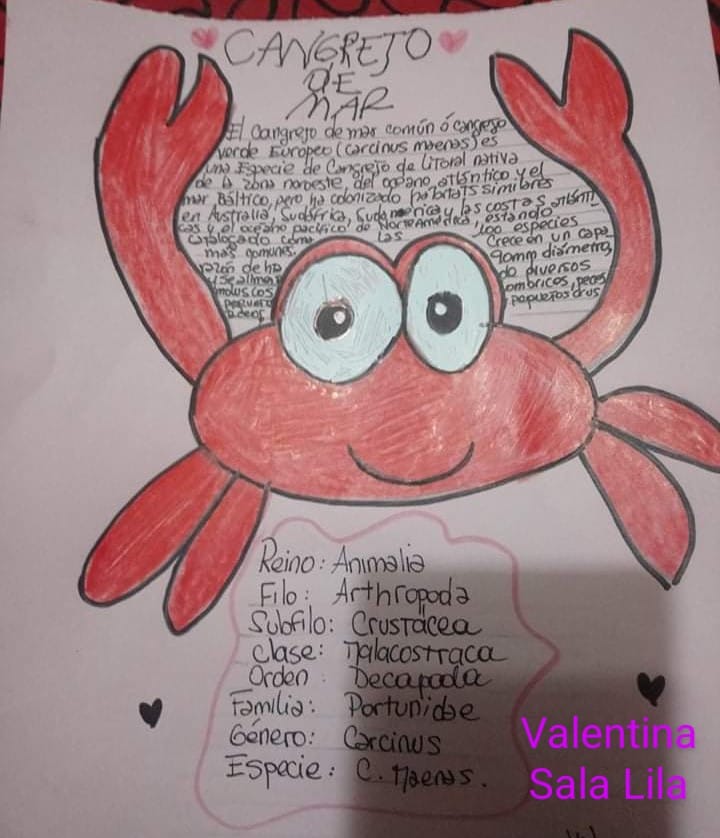 CANGREJO
DE
MAR
El Cangrejo de mar común ó cangrejo
verde Europeo (carcinus maenas) es
una Especie de Cangrejo de litoral nativa
de la zona noroeste, del opeano atlántico y el
mar Báltico, pero ha colonizado habitats similares
en Australia, Sudáfrica, Sudamerica y las costas atlánti
cas y el oceano pacifico de Norteamérica, estando
catalogado como las 100 especies
más comunes. Crece en un capa
razón de ha 90mm diámetro,
se alimen do diversos
moluscos ombricos, peces
pequeños crus
Reino: Animalia
Filo: Arthropoda
Subfilo: Crustácea
Clase: Malacostraca
Orden: Decapoda
Familia: Portunidae
Género: Carcinus
Especie: C. Maenas.
Valentina
Sala Lila